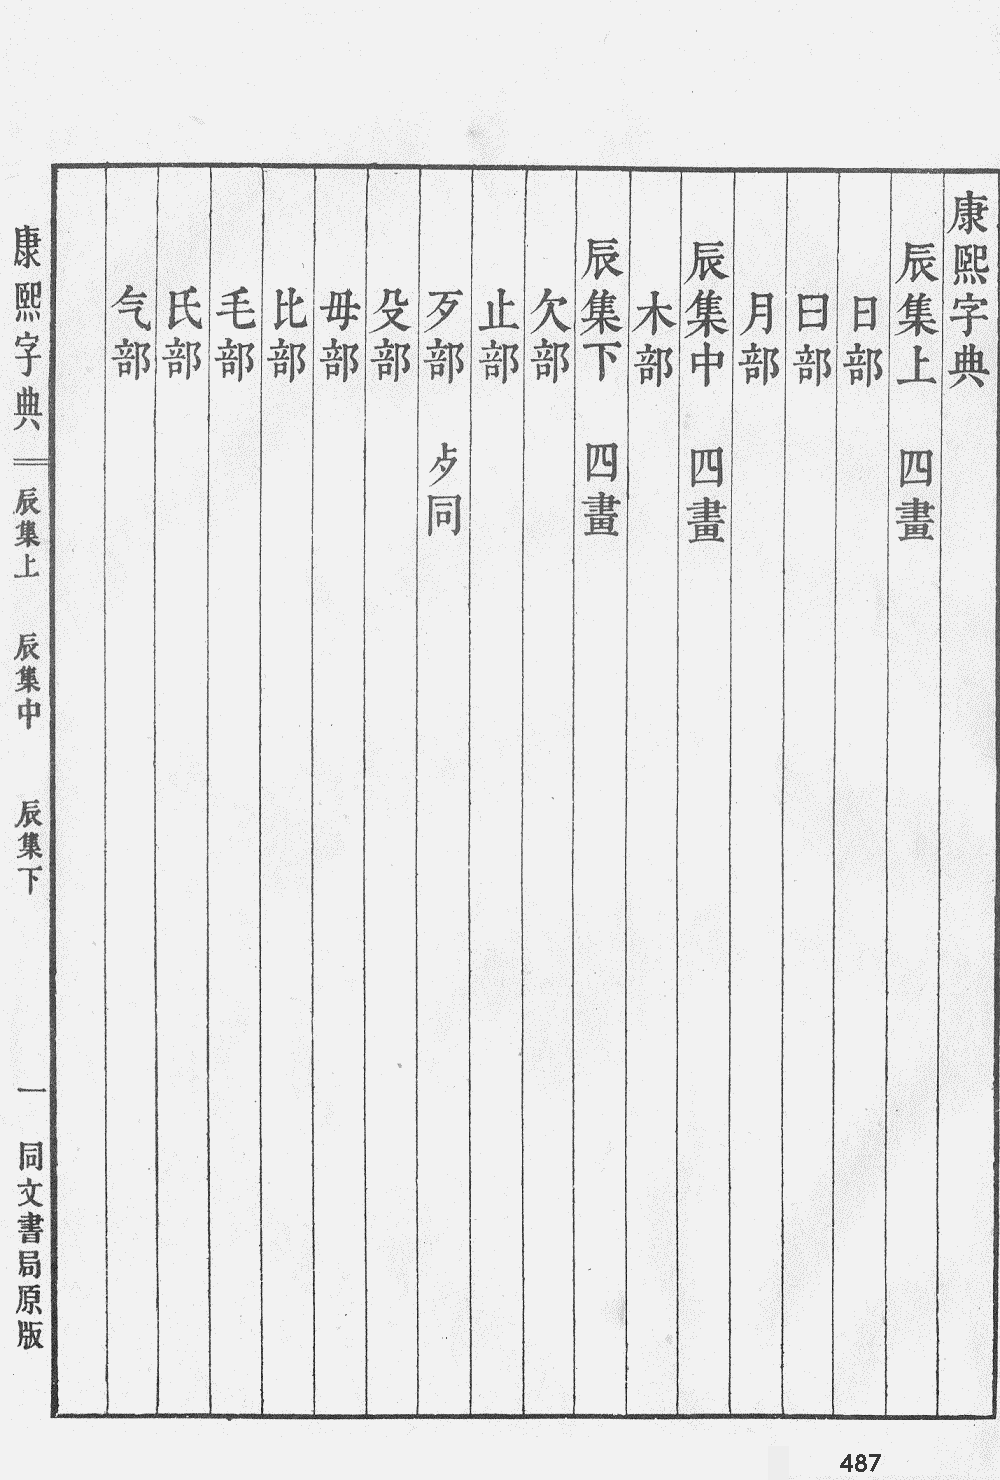 康熙字典
辰集上 四畫
日部
曰部
月部
辰集中 四畫
木部
辰集下 四畫
欠部
止部
歹部 歺同
殳部
毋部
比部
毛部
氏部
气部
康熙字典 辰集上 辰集中 辰集下 一 同文書局原版
487